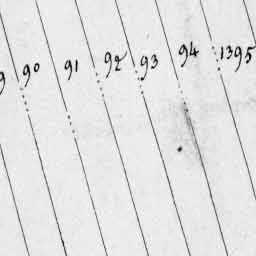 9 90 91 92 93 94 1395